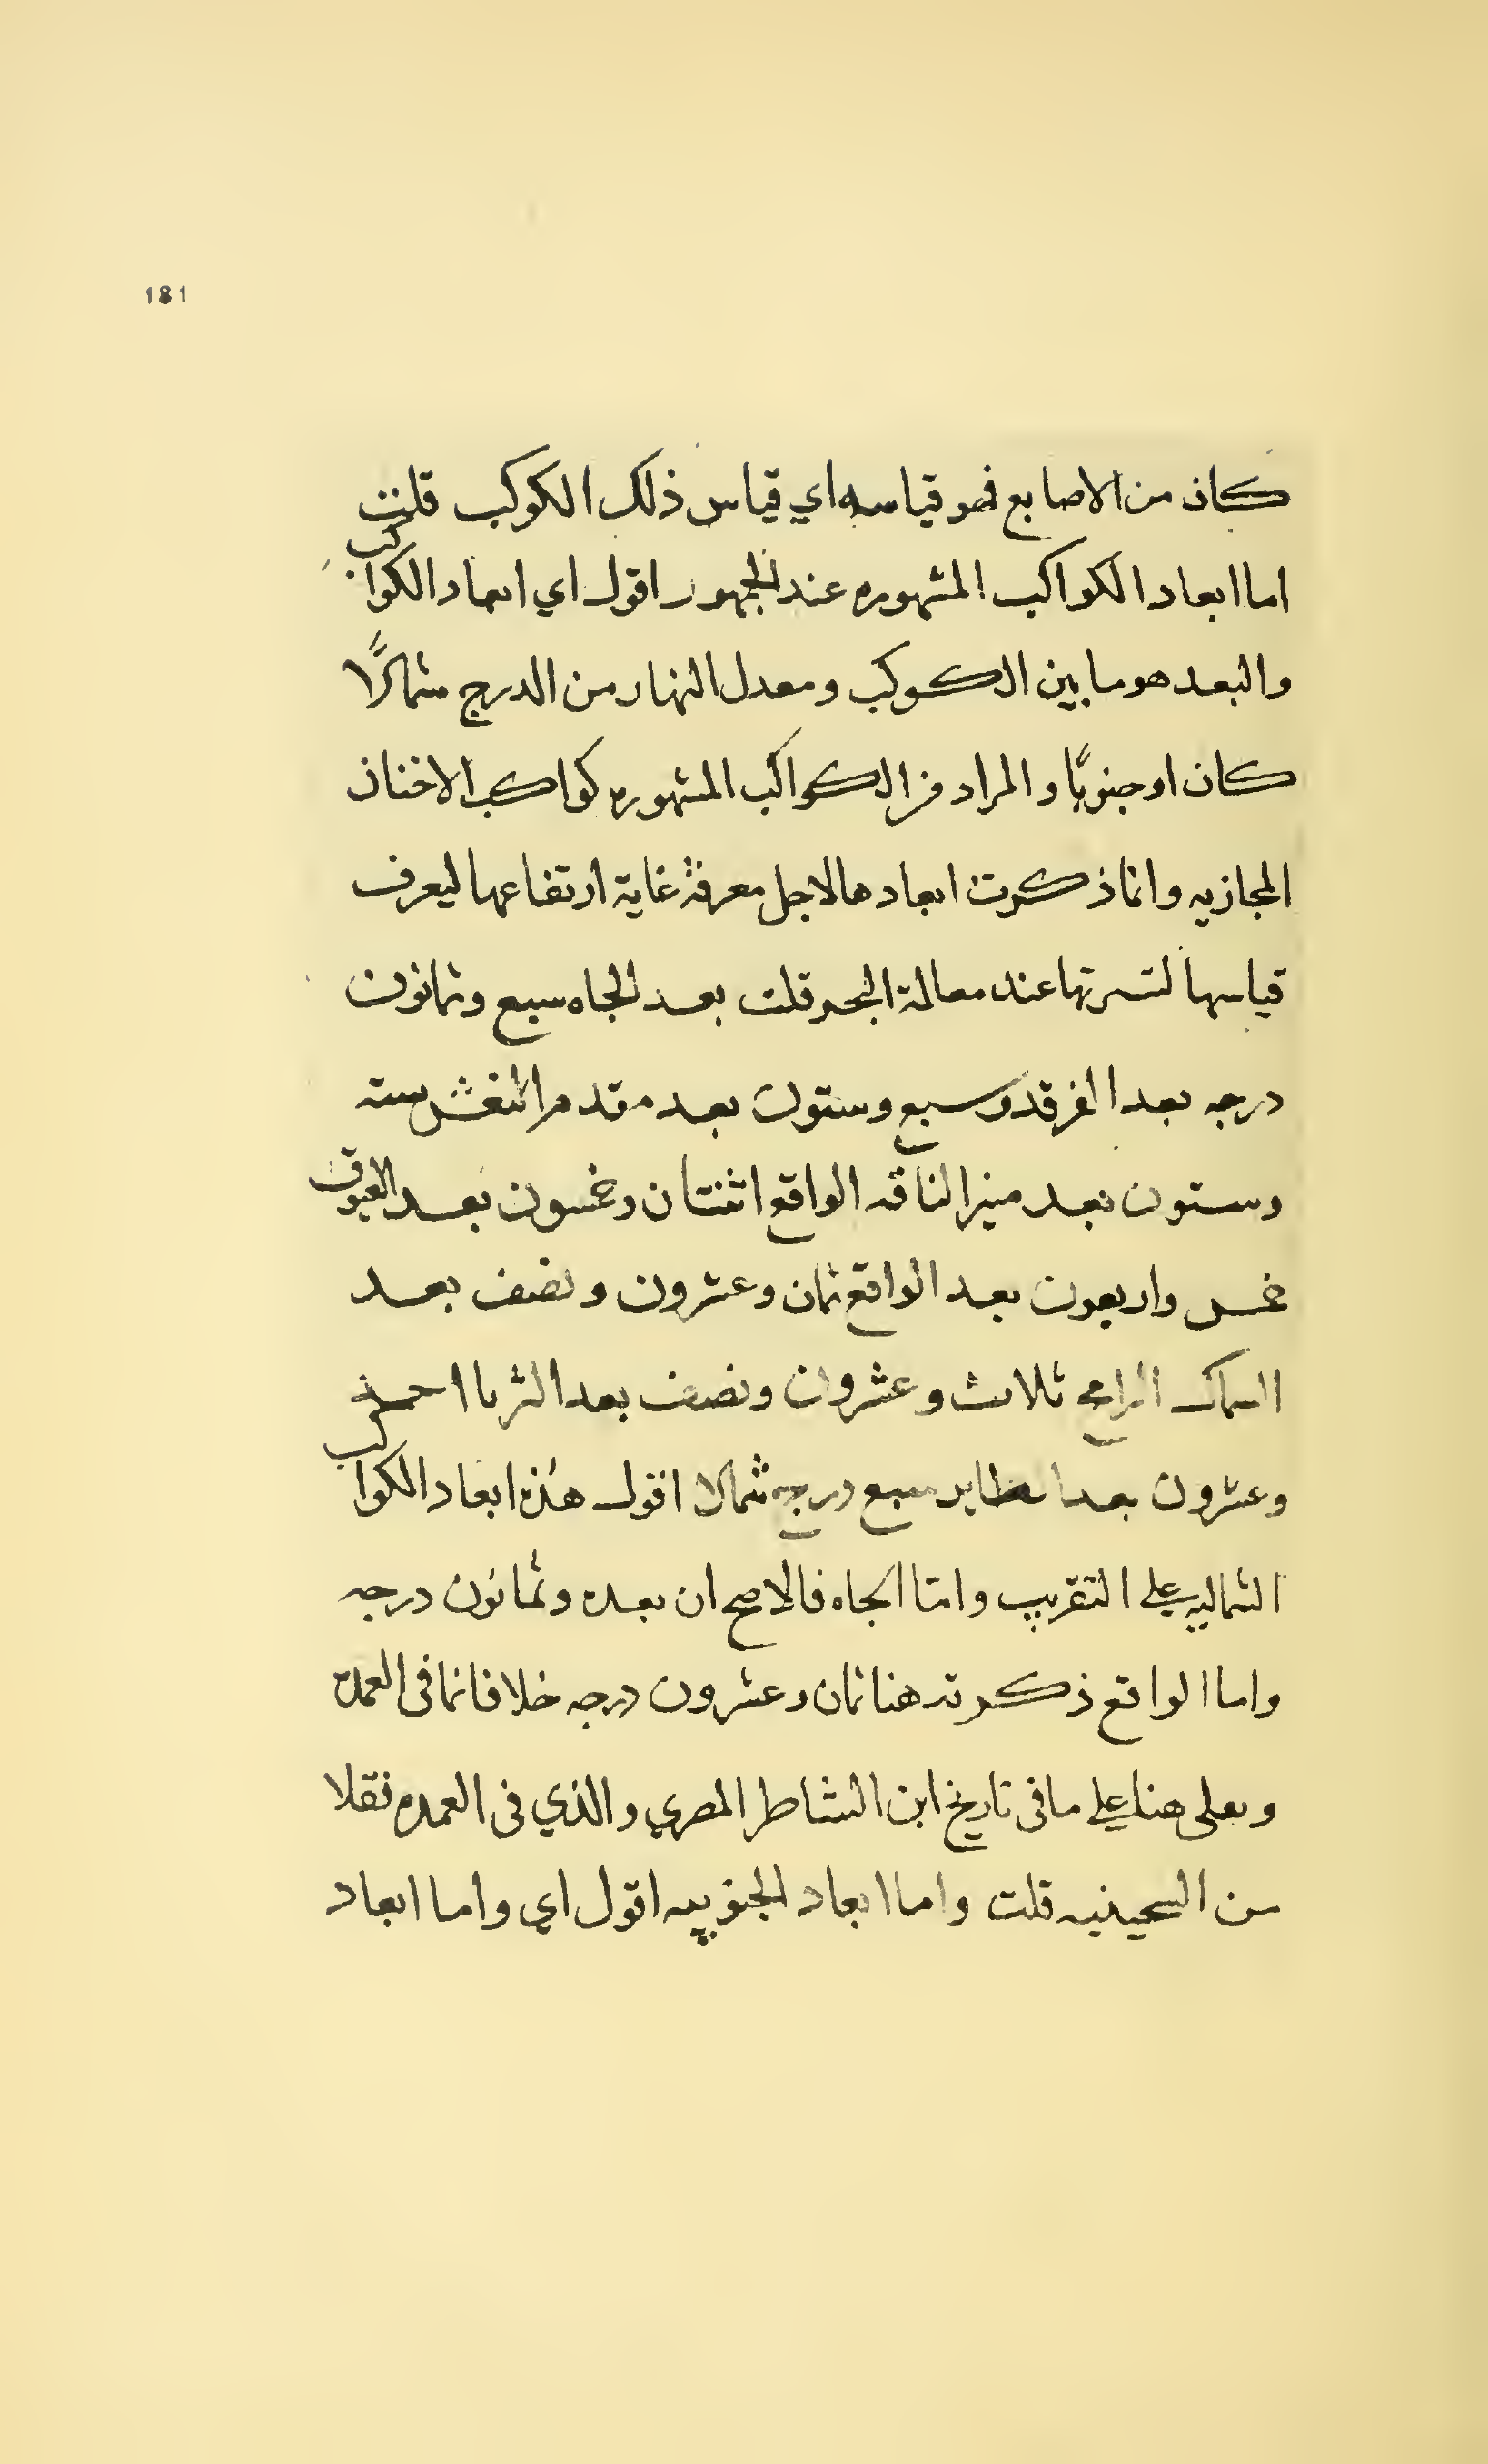 181
كان من الاصابع فهو قياسه اي قياس ذلك الكوكب قلت
اما ابعاد الكواكب المشهوره عند الجمهور اقول اي ابعاد الكواكب
والبعد هو ما بين الكوكب ومعدل النهار من الدرج شمالًا
كان او جنوبيًا والمراد من الكواكب المشهوره كواكب الاخنان
المجازيه وانما ذكرت ابعادها لاجل معرفة غاية ارتفاعها ليعرف
قياسها عند البحر قلت بعد الجاه سبع وثمانون
درجه بعد الفرقد سبع وستون بعد مقدم النعش سته
وستون بعد منير الناقه الواقع اثنتان وخمسون بعد العيوق
خمس واربعون بعد الواقع ثمان وعشرون ونصف بعد
السماك الرامح ثلاث وعشرون ونصف بعد الثريا احد
وعشرون بعد الطاير سبع درجه شمالا اقول هذه ابعاد الكواكب
الشماليه على التقريب وامّا الجاه فالاصح ان بعده وثمانون درجه
واما الواقع ذكرته هنا ثمان وعشرون درجه خلافا في العمده
هنا على ما في تاريخ ابن الشاطر المصري والذي في العمده نقلا
من قلت واما ابعاد الجنوبيه اقول اي واما ابعاد